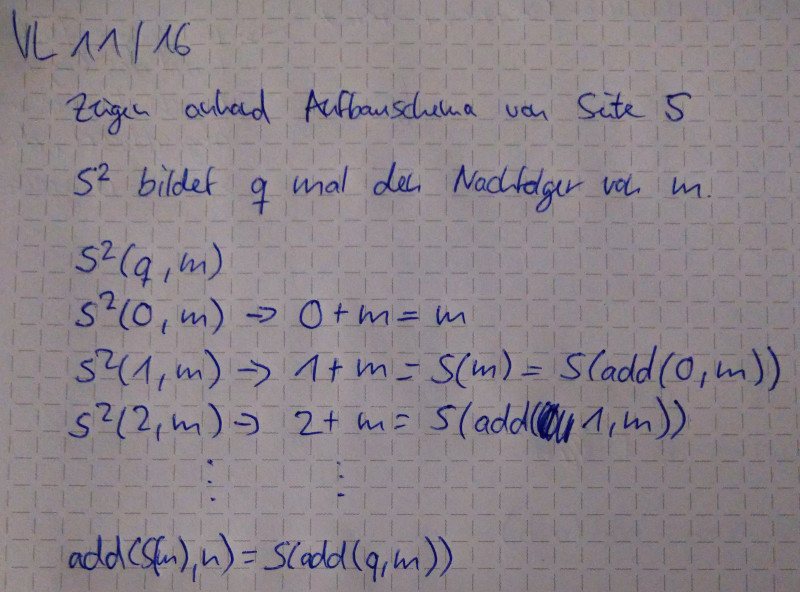 VL 11/16
Zeigen anhand Aufbauschema von Seite 5
S² bildet q mal den Nachfolger von m.
S²(q,m)
S²(0,m) → 0+m = m
S²(1,m) → 1+m = S(m) = S(add(0,m))
S²(2,m) → 2+m = S(add(1,m))
⋮ ⋮
add(S(m),n) = S(add(q,m))